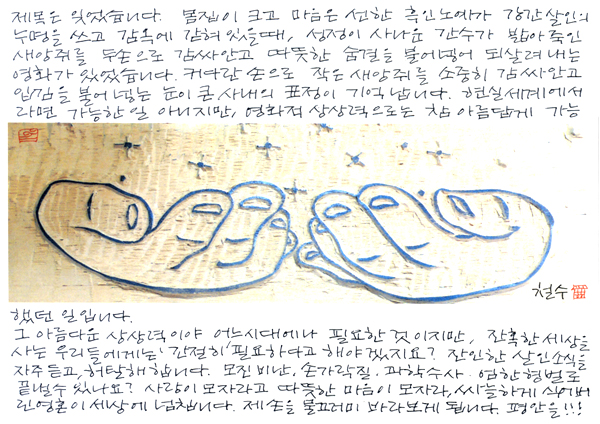 제목은 잊었습니다. 몸집이 크고 마음은 선한 흑인노예가 강간살인의
누명을 쓰고 감옥에 갇혀있을때, 성정이 사나운 간수가 밟아 죽인
새앙쥐를 두손으로 감싸안고 따뜻한 숨결을 불어넣어 되살려내는
영화가 있었습니다. 커다란 손으로 작은 새앙쥐를 소중히 감싸안고
입김을 불어넣는 눈이 큰 사내의 표정이 기억납니다. 현실세계에서
라면 가능한 일 아니지만, 영화적 상상력으로는 참 아름답게 가능
철수
했던 일입니다.
그 아름다운 상상력이야 어느시대에나 필요한 것이지만, 잔혹한 세상을
사는 우리들에게는 간절히 필요하다고 해야겠지요? 잔인한 살인소식을
자주 듣고, 허탈해 합니다. 모진 비난, 손가락질. 과학수사. 엄한 형벌로
끝낼수 있나요? 사랑이 모자라고 따뜻한 마음이 모자라, 싸늘하게 식어버
린 영혼이 세상에 넘칩니다. 제 손을 물끄러미 바라보게 됩니다. 평안을!!!